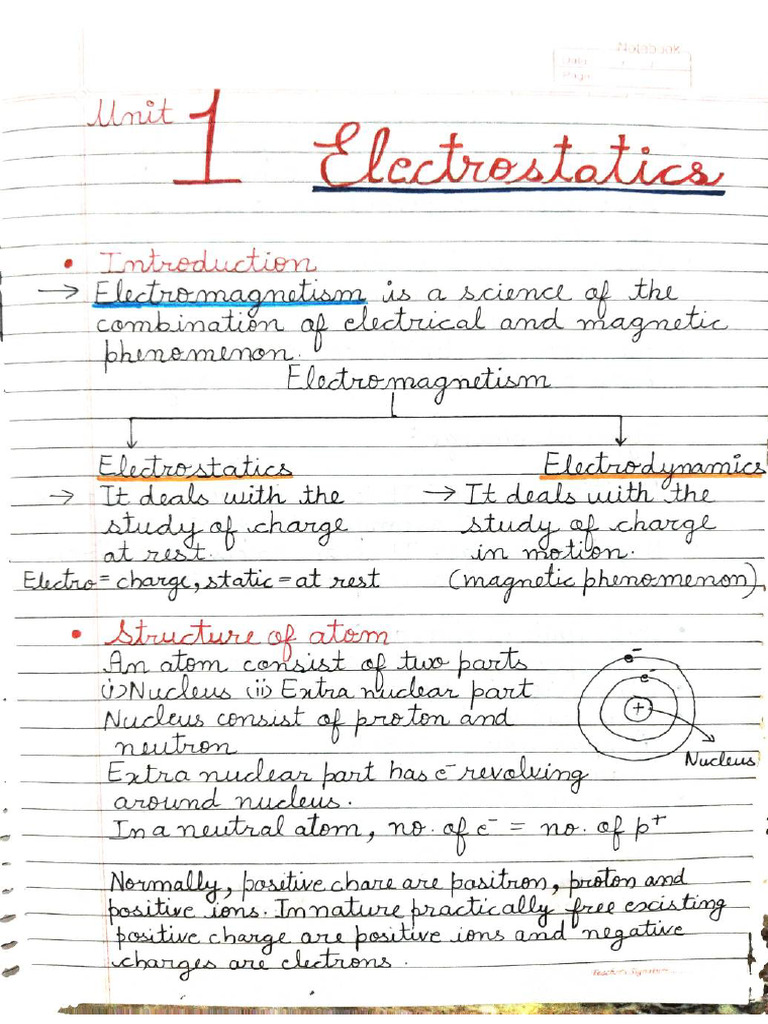 Notebook
Date
Page
Unit 1 Electrostatics
• Introduction
→ Electromagnetism is a science of the
combination of electrical and magnetic
phenomenon.
Electromagnetism
Electrostatics
→ It deals with the
study of charge
at rest.
Electro = charge, static = at rest
Electrodynamics
→ It deals with the
study of charge
in motion.
(magnetic phenomenon)
• Structure of atom
An atom consist of two parts
(i) Nucleus (ii) Extra nuclear part
Nucleus consist of proton and
neutron
Extra nuclear part has e⁻ revolving
around nucleus.
In a neutral atom, no. of e⁻ = no. of p⁺
e⁻
e⁻
+
Nucleus
Normally, positive chare are positron, proton and
positive ions. In nature practically free excisting
positive charge are positive ions and negative
charges are electrons.
Teacher's Signature